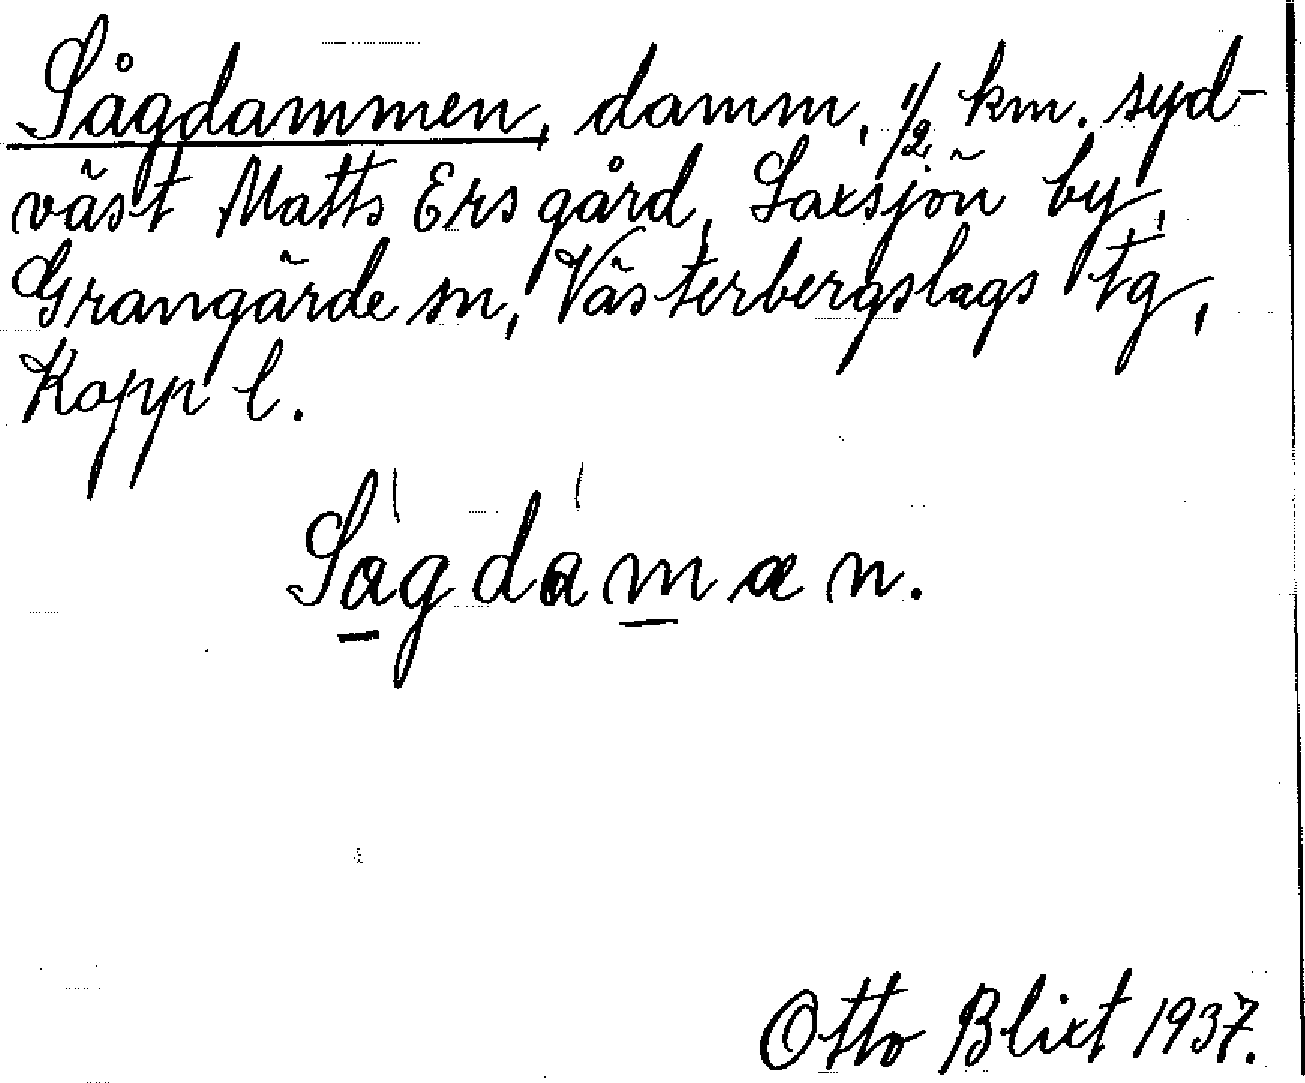 Sågdammen, damm, 1/2 km. syd-
väst Matts Ers gård, Laxsjön by,
Grangärde sn, Västerbergslags tg,
Kopp l.
Sagdamæn.
Otto Blixt 1937.